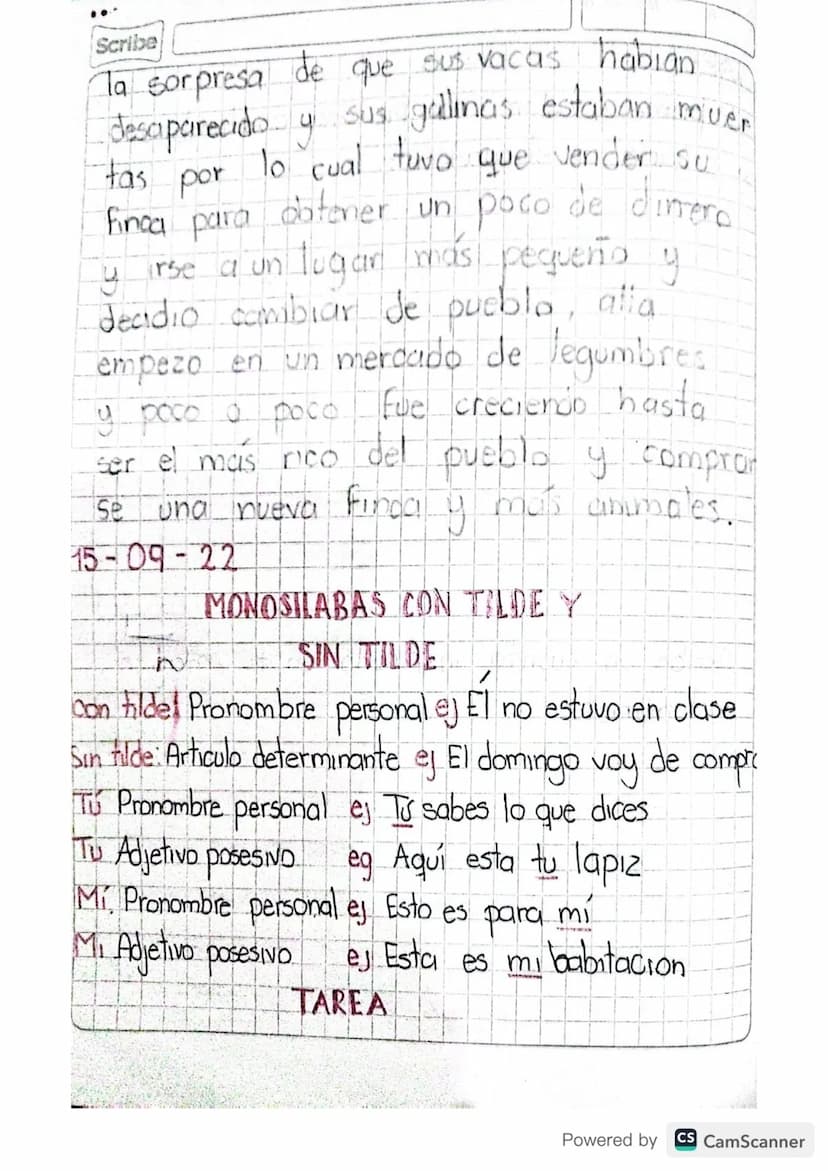 Scribe
la sorpresa de que sus vacas habian
desaparecido y sus gallinas estaban muer
tas por lo cual tuvo que vender su
finca para obtener un poco de dinero
y irse a un lugar más pequeño y
decidio cambiar de pueblo, alla
empezo en un mercado de legumbres
y poco a poco fue creciendo hasta
ser el más rico del pueblo y comprar
se una nueva finca y más animales.
15-09-22
MONOSILABAS CON TILDE Y
SIN TILDE
con tilde: Pronombre personal ej Él no estuvo en clase
Sin tilde: Articulo determinante ej El domingo voy de compra
Tú Pronombre personal ej Tú sabes lo que dices
Tu Adjetivo posesivo eg Aquí esta tu lapiz
Mí. Pronombre personal ej Esto es para mí
Mi Adjetivo posesivo ej Esta es mi babitacion
TAREA
Powered by CS CamScanner